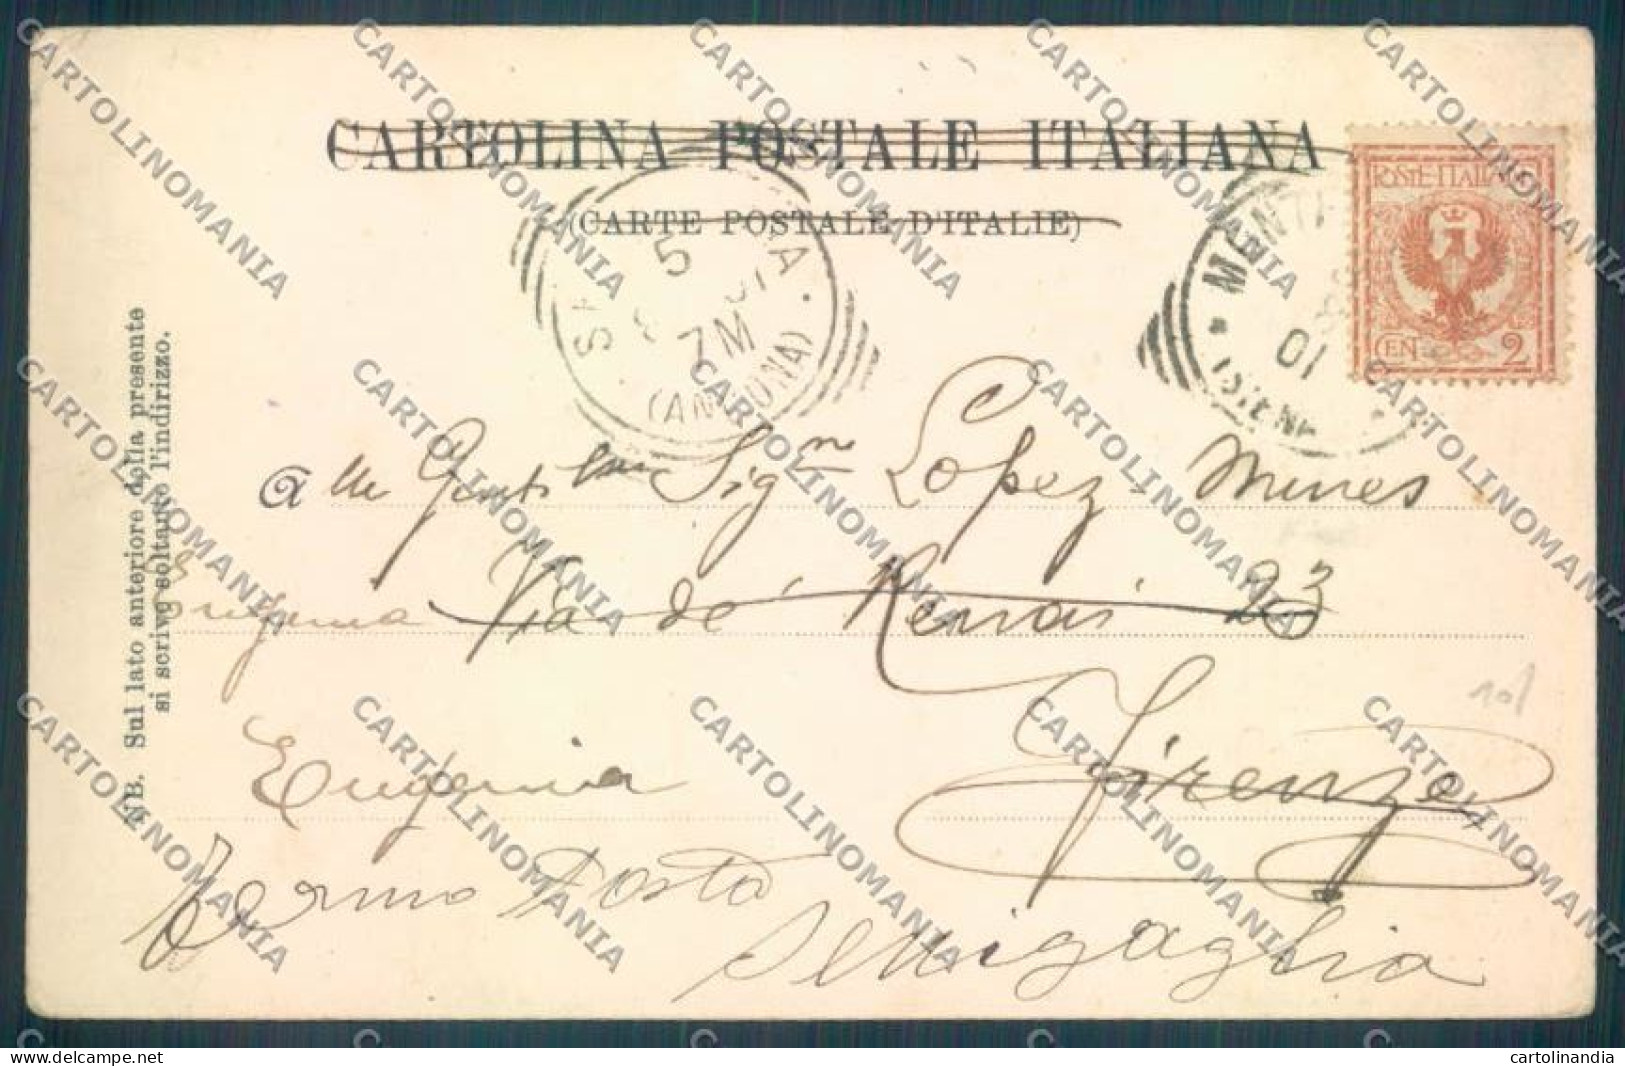 CARTOLINA POSTALE ITALIANA
(CARTE POSTALE D'ITALIE)
POSTE ITALIANE
CEN 2
5
7M
(ANCONA)
01
(SIENA
NB. Sul lato anteriore della presente
si scrive soltanto l'indirizzo.
Alla Gent Sig Lopez
Via de' Renai 23
Firenze
Eugenia
Fermo Posta
Senigaglia
101
CARTOLINOMANIA
cartolinandia
delcampe.net